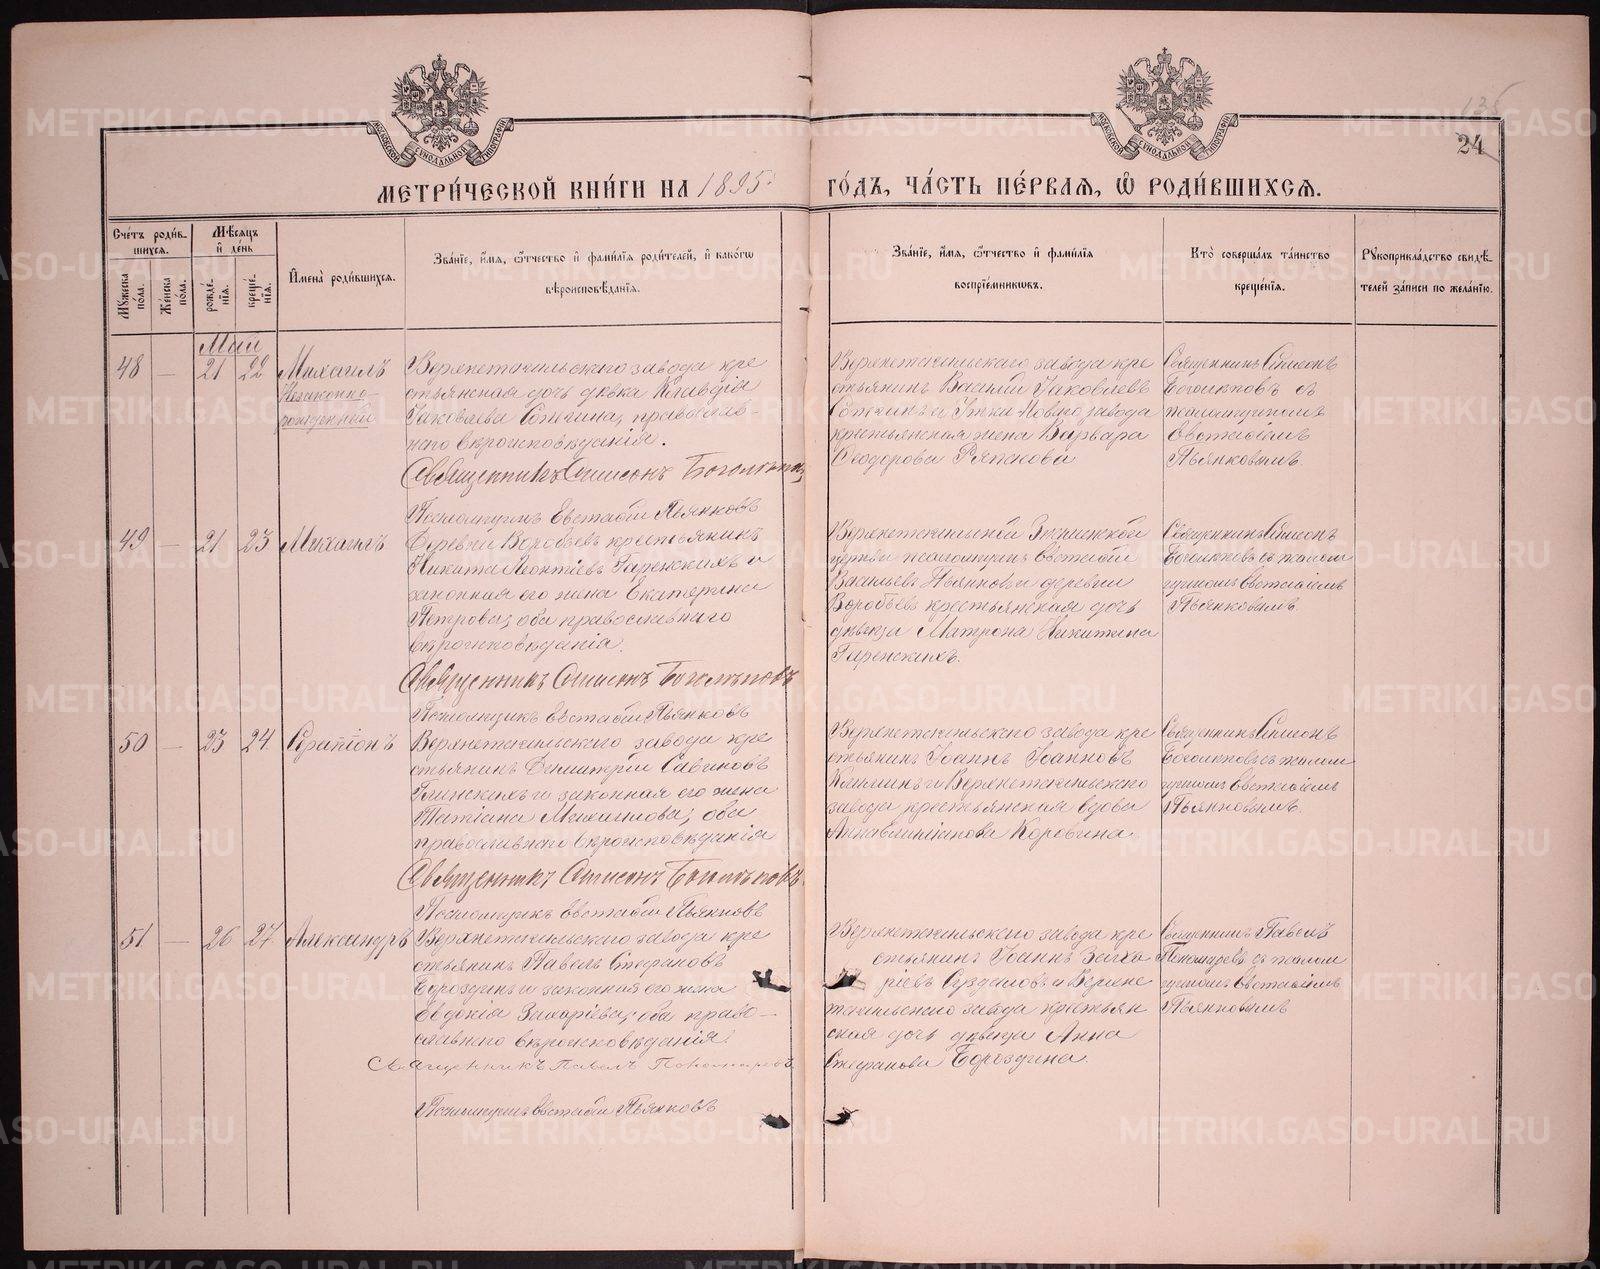 135
24
МОСКОВСКОЙ СѴНОДАЛЬНОЙ ТИПОГРАФІИ
МОСКОВСКОЙ СѴНОДАЛЬНОЙ ТИПОГРАФІИ
МЕТРИ́ЧЕСКОЙ КНИ́ГИ НА 1895 ГО́ДЪ, ЧА́СТЬ ПЕ́РВАЯ, Ѡ РОДИ́ВШИХСЯ.
Сче́тъ роди́в-
шихся.
Мꙋжеска по́ла.
Же́нска по́ла.
Мѣ́сяцъ
и́ де́нь
рожде́-
нїя.
креще́-
нїя.
И҆мена̀ роди́вшихся.
Зва́нїе, и҆́мя, ѻ҆́тчество и҆ фами́лїя роди́телей, и҆ како́гѡ
вѣроисповѣ́данїя.
Зва́нїе, и҆́мя, ѻ҆́тчество и҆ фами́лїя
воспрїе́мниковъ.
Кто̀ соверша́лъ та́инство
креще́нїя.
Рꙋкоприкла́дство свидѣ́-
телей за́писи по жела́нїю.
Май
48 — 21 22
Михаилъ
Незаконно-
рожденный
Верхнетагильскаго завода кре
стьянская дочь девка Клавдія
Іаковлева Сопчина, православ-
наго вѣроисповѣданія.
Священникъ Симеонъ Боголѣповъ
Псаломщикъ Евстафій Пьянковъ
Верхнетагильскаго завода кре
стьянинъ Василій Іаковлевъ
завода
крестьянская жена Варвара
Ѳеодорова
Священникъ Симеонъ
Боголѣповъ съ
псаломщикомъ
Евстафіемъ
Пьянковымъ.
49 — 21 23
Михаилъ
Деревни Воробьевъ крестьянинъ
Никита Леонтіевъ Гаренскихъ и
законная его жена Екатерина
Петрова; оба православнаго
вѣроисповѣданія.
Священникъ Симеонъ Боголѣповъ
Псаломщикъ Евстафій Пьянковъ
Верхнетагильской Знаменской
церкви псаломщикъ Евстафій
Васильевъ Пьянковъ и деревни
Воробьевъ крестьянская дочь
девица Матрона Никитина
Гаренскихъ.
Священникъ Симеонъ
Боголѣповъ съ псалом
щикомъ Евстафіемъ
Пьянковымъ
50 — 23 24
Серапіонъ
Верхнетагильскаго завода кре
стьянинъ Димитрій Саввиновъ
Глинскихъ и законная его жена
Татіана Михаилова; оба
православнаго вѣроисповѣданія
Священникъ Симеонъ Боголѣповъ
Псаломщикъ Евстафій Пьянковъ
Верхнетагильскаго завода кре
стьянинъ Іоаннъ Іоанновъ
и Верхнетагильскаго
завода крестьянская вдова
Анна Коровина
Священникъ Симеонъ
Боголѣповъ съ псалом
щикомъ Евстафіемъ
Пьянковымъ.
51 — 26 27
Александръ
Верхнетагильскаго завода кре
стьянинъ Павелъ Стефановъ
Бороздинъ и законная его жена
Евдокія Захаріева; оба право-
славнаго вѣроисповѣданія.
Священникъ Павелъ Пономаревъ
Псаломщикъ Евстафій Пьянковъ
Верхнетагильскаго завода кре
стьянинъ Іоаннъ Заха
ріевъ Суздаловъ и Верхне
тагильскаго завода крестьян
ская дочь девица Анна
Стефанова Бороздина.
Священникъ Павелъ
Пономаревъ съ псалом
щикомъ Евстафіемъ
Пьянковымъ
METRIKI.GASO-URAL.RU